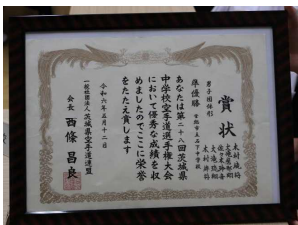 賞状
男子団体形
準優勝
あなたは第二十八回茨城県
中学校空手道選手権大会
において優秀な成績を収
めましたのでここに栄誉
をたたえ賞します
令和六年五月十二日
一般社団法人茨城県空手道連盟
会長 西條昌良